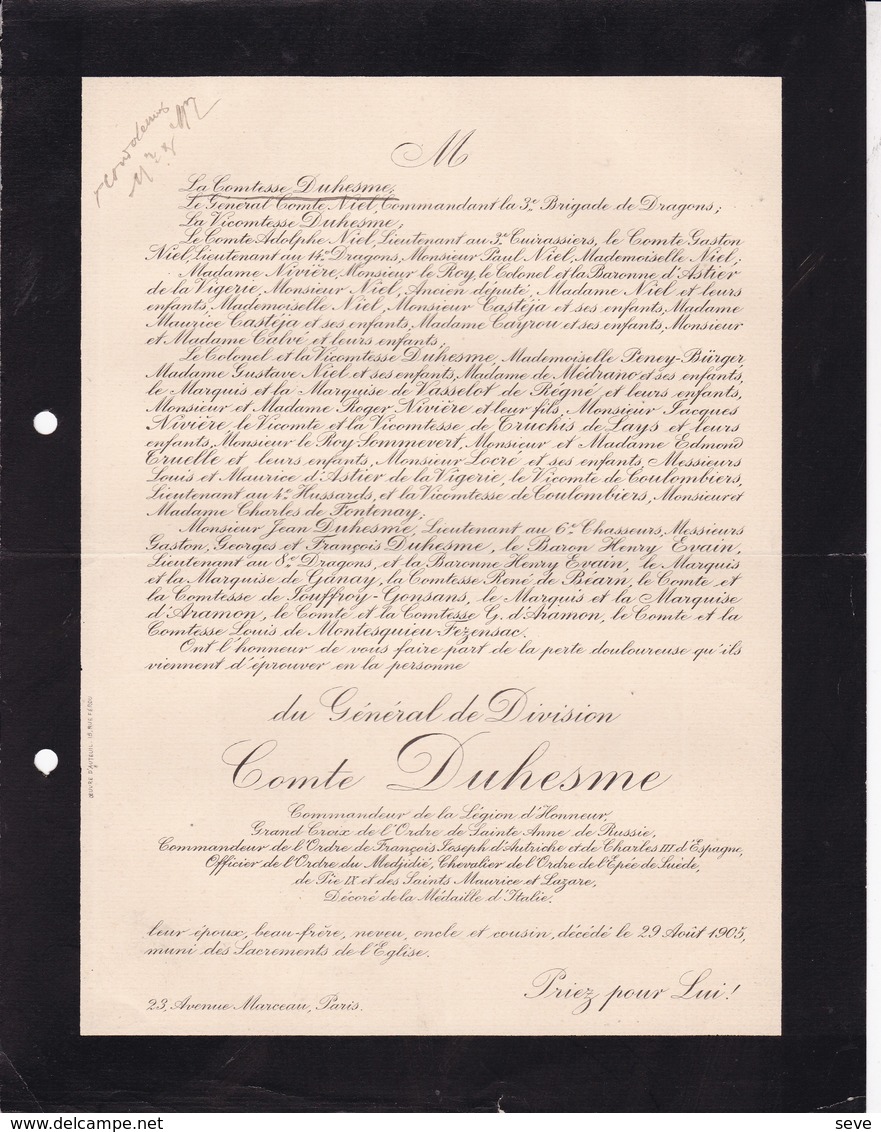 M
La Comtesse Duhesme,
Le Général Comte Niel, Commandant la 3e. Brigade de Dragons;
La Vicomtesse Duhesme;
Le Comte Adolphe Niel, Lieutenant au 3e. Cuirassiers, le Comte Gaston
Niel, Lieutenant au 14e. Dragons, Monsieur Paul Niel, Mademoiselle Niel;
Madame Nivière, Monsieur le Roy, le Colonel et la Baronne d'Astier
de la Vigerie, Monsieur Niel, Ancien député, Madame Niel et leurs
enfants, Mademoiselle Niel, Monsieur Castéja et ses enfants, Madame
Maurice Castéja et ses enfants, Madame Cayrou et ses enfants, Monsieur
et Madame Calvé et leurs enfants;
Le Colonel et la Vicomtesse Duhesme, Mademoiselle Peney-Bürger,
Madame Gustave Niel et ses enfants, Madame de Médrano et ses enfants,
le Marquis et la Marquise de Vasselot de Régné et leurs enfants,
Monsieur et Madame Roger Nivière et leur fils, Monsieur Jacques
Nivière, le Vicomte et la Vicomtesse de Truchis de Lays et leurs
enfants, Monsieur le Roy Sommevert, Monsieur et Madame Edmond
Truelle et leurs enfants, Monsieur Locré et ses enfants, Messieurs
Louis et Maurice d'Astier de la Vigerie, le Vicomte de Coulombiers,
Lieutenant au 4e. Hussards, et la Vicomtesse de Coulombiers, Monsieur et
Madame Charles de Fontenay;
Monsieur Jean Duhesme, Lieutenant au 6e. Chasseurs, Messieurs
Gaston, Georges et François Duhesme, le Baron Henry Evain,
Lieutenant au 8e. Dragons, et la Baronne Henry Evain, le Marquis
et la Marquise de Ganay, la Comtesse René de Béarn, le Comte et
la Comtesse de Jouffroy-Gonsans, le Marquis et la Marquise
d'Aramon, le Comte et la Comtesse G. d'Aramon, le Comte et la
Comtesse Louis de Montesquieu-Fezensac.
Ont l'honneur de vous faire part de la perte douloureuse qu'ils
viennent d'éprouver en la personne
du Général de Division
Comte Duhesme
Commandeur de la Légion d'Honneur,
Grand Croix de l'Ordre de Sainte Anne de Russie,
Commandeur de l'Ordre de François Joseph d'Autriche et de Charles III d'Espagne,
Officier de l'Ordre du Medjidié, Chevalier de l'Ordre de l'Epée de Suède,
de Pie IX et des Saints Maurice et Lazare,
Décoré de la Médaille d'Italie.
leur époux, beau-frère, neveu, oncle et cousin, décédé le 29 Août 1905,
muni des Sacrements de l'Eglise.
Priez pour Lui!
23, Avenue Marceau, Paris.
ŒUVRE D'AUTEUIL. 18, RUE FÉROU
delcampe.net
seve